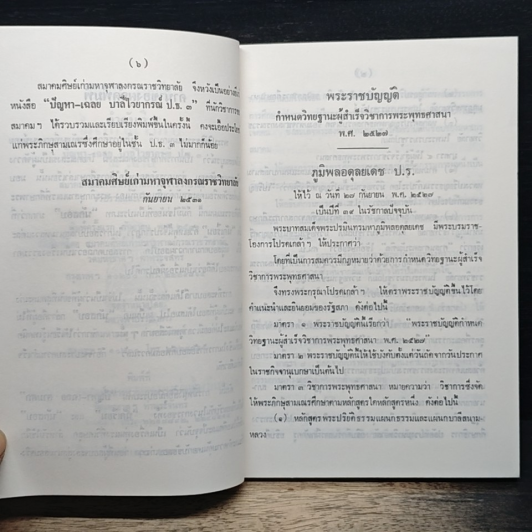 ( ๖ )
สมาคมศิษย์เก่ามหาจุฬาลงกรณราชวิทยาลัย จึงหวังเป็นอย่าง
หนังสือ "ปัญหา–เฉลย บาลีไวยากรณ์ ป.ธ. ๓" ที่นักวิชาการ
สมาคมฯ ได้รวบรวมและเรียบเรียงพิมพ์ขึ้นในครั้งนี้ คงจะเอื้อประโย
แก่พระภิกษุสามเณรซึ่งศึกษาอยู่ในชั้น ป.ธ. ๓ ไม่มากก็น้อย
สมาคมศิษย์เก่ามหาจุฬาลงกรณราชวิทยาลัย
กันยายน ๒๕๓๑
พระราชบัญญัติ
กำหนดวิทยฐานะผู้สำเร็จวิชาการพระพุทธศาสนา
พ.ศ. ๒๕๒๗
ภูมิพลอดุลยเดช ป.ร.
ให้ไว้ ณ วันที่ ๒๗ กันยายน พ.ศ. ๒๕๒๗
เป็นปีที่ ๓๙ ในรัชกาลปัจจุบัน
พระบาทสมเด็จพระปรมินทรมหาภูมิพลอดุลยเดช มีพระบรมราช-
โองการโปรดเกล้า ฯ ให้ประกาศว่า
โดยที่เป็นการสมควรมีกฎหมายว่าด้วยการกำหนดวิทยฐานะผู้สำเร็จ
วิชาการพระพุทธศาสนา
จึงทรงพระกรุณาโปรดเกล้า ฯ ให้ตราพระราชบัญญัติขึ้นไว้โดย
คำแนะนำและยินยอมของรัฐสภา ดังต่อไปนี้
มาตรา ๑ พระราชบัญญัตินี้เรียกว่า "พระราชบัญญัติกำหนด
วิทยฐานะผู้สำเร็จวิชาการพระพุทธศาสนา พ.ศ. ๒๕๒๗"
มาตรา ๒ พระราชบัญญัตินี้ให้ใช้บังคับตั้งแต่วันถัดจากวันประกาศ
ในราชกิจจานุเบกษาเป็นต้นไป
มาตรา ๓ วิชาการพระพุทธศาสนา หมายความว่า วิชาการซึ่งจัด
ให้พระภิกษุสามเณรศึกษาตามหลักสูตรใดหลักสูตรหนึ่ง ดังต่อไปนี้
(๑) หลักสูตรพระปริยัติธรรมแผนกธรรมและแผนกบาลีสนาม
หลวง